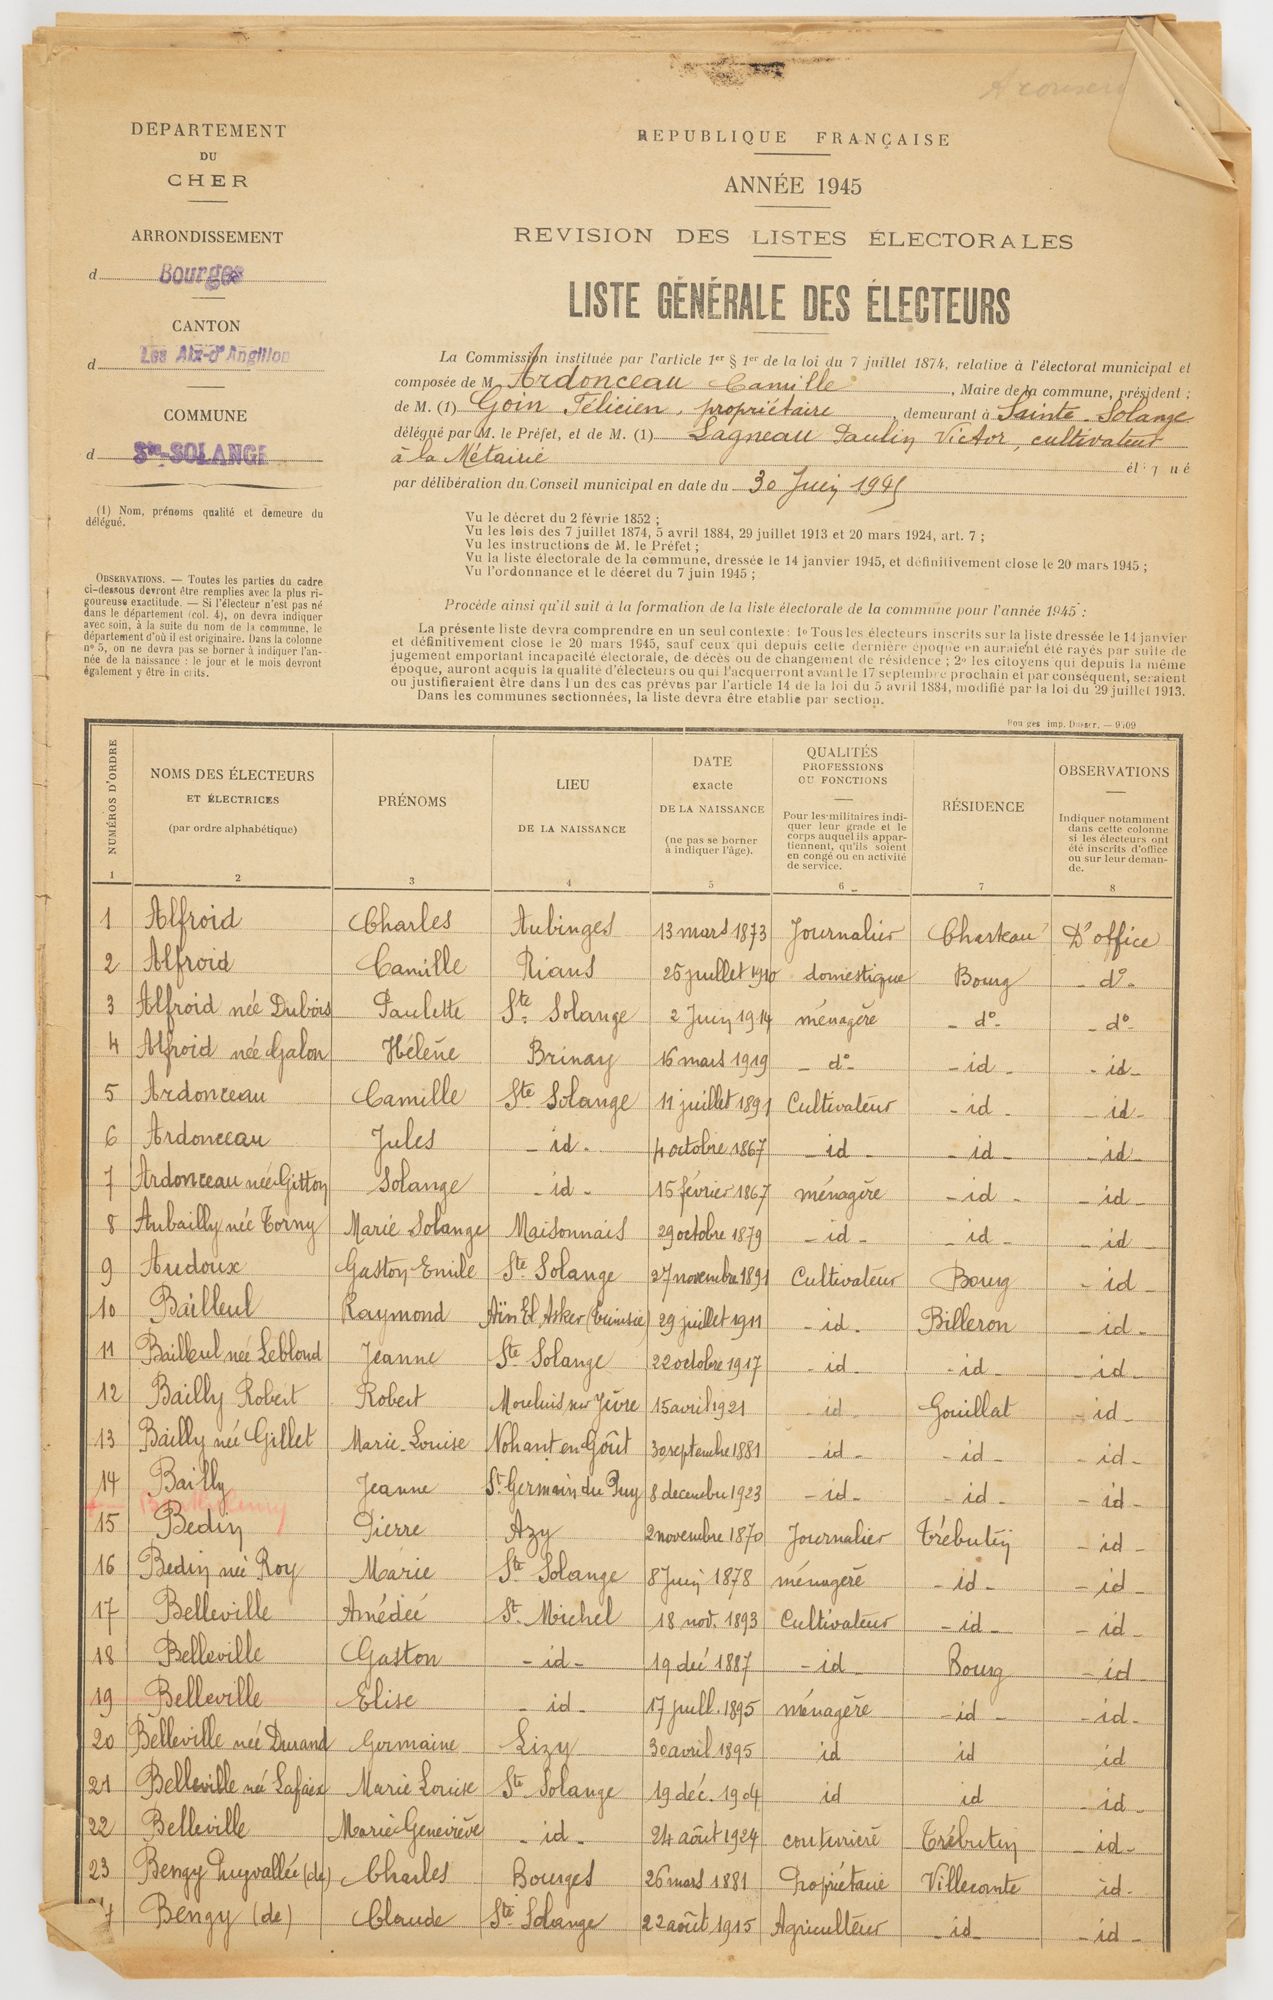 DEPARTEMENT
DU
CHER
ARRONDISSEMENT
d Bourges
CANTON
d Les Aix-d'Angillon
COMMUNE
d Ste-SOLANGE
(1) Nom, prénoms qualité et demeure du
délégué.
OBSERVATIONS. — Toutes les parties du cadre
ci-dessous devront être remplies avec la plus ri-
goureuse exactitude. — Si l'électeur n'est pas né
dans le département (col. 4), on devra indiquer
avec soin, à la suite du nom de la commune, le
département d'où il est originaire. Dans la colonne
n° 5, on ne devra pas se borner à indiquer l'an-
née de la naissance : le jour et le mois devront
également y être in crits.
REPUBLIQUE FRANÇAISE
ANNÉE 1945
REVISION DES LISTES ÉLECTORALES
LISTE GÉNÉRALE DES ÉLECTEURS
La Commission instituée par l'article 1er § 1er de la loi du 7 juillet 1874, relative à l'électorat municipal et
composée de M Ardonceau Camille, Maire de la commune, président ;
de M. (1) Goin Félicien, propriétaire, demeurant à Sainte-Solange
délégué par M. le Préfet, et de M. (1) Lagneau Paulin Victor, cultivateur
à la Métairie él 7 ué
par délibération du Conseil municipal en date du 30 Juin 1945
Vu le décret du 2 févrie 1852 ;
Vu les lois des 7 juillet 1874, 5 avril 1884, 29 juillet 1913 et 20 mars 1924, art. 7 ;
Vu les instructions de M. le Préfet ;
Vu la liste électorale de la commune, dressée le 14 janvier 1945, et définitivement close le 20 mars 1945 ;
Vu l'ordonnance et le décret du 7 juin 1945 ;
Procède ainsi qu'il suit à la formation de la liste électorale de la commune pour l'année 1945 :
La présente liste devra comprendre en un seul contexte : 1° Tous les électeurs inscrits sur la liste dressée le 14 janvier
et définitivement close le 20 mars 1945, sauf ceux qui depuis cette dernière époque en auraient été rayés par suite de
jugement emportant incapacité électorale, de décès ou de changement de résidence ; 2° les citoyens qui depuis la même
époque, auront acquis la qualité d'électeurs ou qui l'acquerront avant le 17 septembre prochain et par conséquent, seraient
ou justifieraient être dans l'un des cas prévus par l'article 14 de la loi du 5 avril 1884, modifié par la loi du 29 juillet 1913.
Dans les communes sectionnées, la liste devra être etablie par section.
NUMÉROS D'ORDRE
1
NOMS DES ÉLECTEURS
ET ÉLECTRICES
(par ordre alphabétique)
2
PRÉNOMS
3
LIEU
DE LA NAISSANCE
4
DATE
exacte
DE LA NAISSANCE
(ne pas se borner
à indiquer l'âge).
5
QUALITÉS
PROFESSIONS
OU FONCTIONS
Pour les militaires indi-
quer leur grade et le
corps auquel ils appar-
tiennent, qu'ils soient
en congé ou en activité
de service.
6
RÉSIDENCE
7
OBSERVATIONS
Indiquer notamment
dans cette colonne
si les électeurs ont
été inscrits d'office
ou sur leur deman-
de.
8
1 Alfroid Charles Aubinges 13 mars 1873 Journalier Charteau D'office
2 Alfroid Camille Rians 25 juillet 1910 domestique Bourg - d° -
3 Alfroid née Dubois Paulette Ste Solange 2 Juin 1914 ménagère - d° - - d° -
4 Alfroid née Galon Hélène Brinay 16 mars 1919 - d° - - id - - id -
5 Ardonceau Camille Ste Solange 11 juillet 1891 Cultivateur - id - - id -
6 Ardonceau Jules - id - 4 octobre 1867 - id - - id - - id -
7 Ardonceau née Gitton Solange - id - 15 février 1867 ménagère - id - - id -
8 Aubailly née Torny Marie Solange Maisonnais 29 octobre 1879 - id - - id - - id -
9 Audoux Gaston Emile Ste Solange 27 novembre 1891 Cultivateur Bourg - id -
10 Bailleul Raymond Aïn El Asker (Tunisie) 29 juillet 1911 - id - Billeron - id -
11 Bailleul née Leblond Jeanne Ste Solange 22 octobre 1917 - id - - id - - id -
12 Bailly Robert Robert Moulins sur Yèvre 15 avril 1921 - id - Gouillat - id -
13 Bailly née Gillet Marie-Louise Nohant en Goût 30 septembre 1881 - id - - id - - id -
14 Bailly Jeanne St Germain du Puy 8 decembre 1923 - id - - id - - id -
15 Bedin Pierre Azy 2 novembre 1870 Journalier Trébutin - id -
16 Bedin née Roy Marie Ste Solange 8 Juin 1878 ménagère - id - - id -
17 Belleville Amédée St Michel 18 nov. 1893 Cultivateur - id - - id -
18 Belleville Gaston - id - 19 déc 1887 - id - Bourg - id -
19 Belleville Elise - id - 17 juill. 1895 ménagère - id - - id -
20 Belleville née Durand Germaine Lizy 30 avril 1895 id id id
21 Belleville née Lafaix Marie Louise Ste Solange 19 déc. 1904 id id - id -
22 Belleville Marie Geneviève - id - 24 août 1924 couturière Trébutin - id -
23 Bengy Puyvallée (de) Charles Bourges 26 mars 1881 Propriétaire Villecomte - id -
Bengy (de) Claude Ste Solange 22 août 1915 Agriculteur - id - - id -